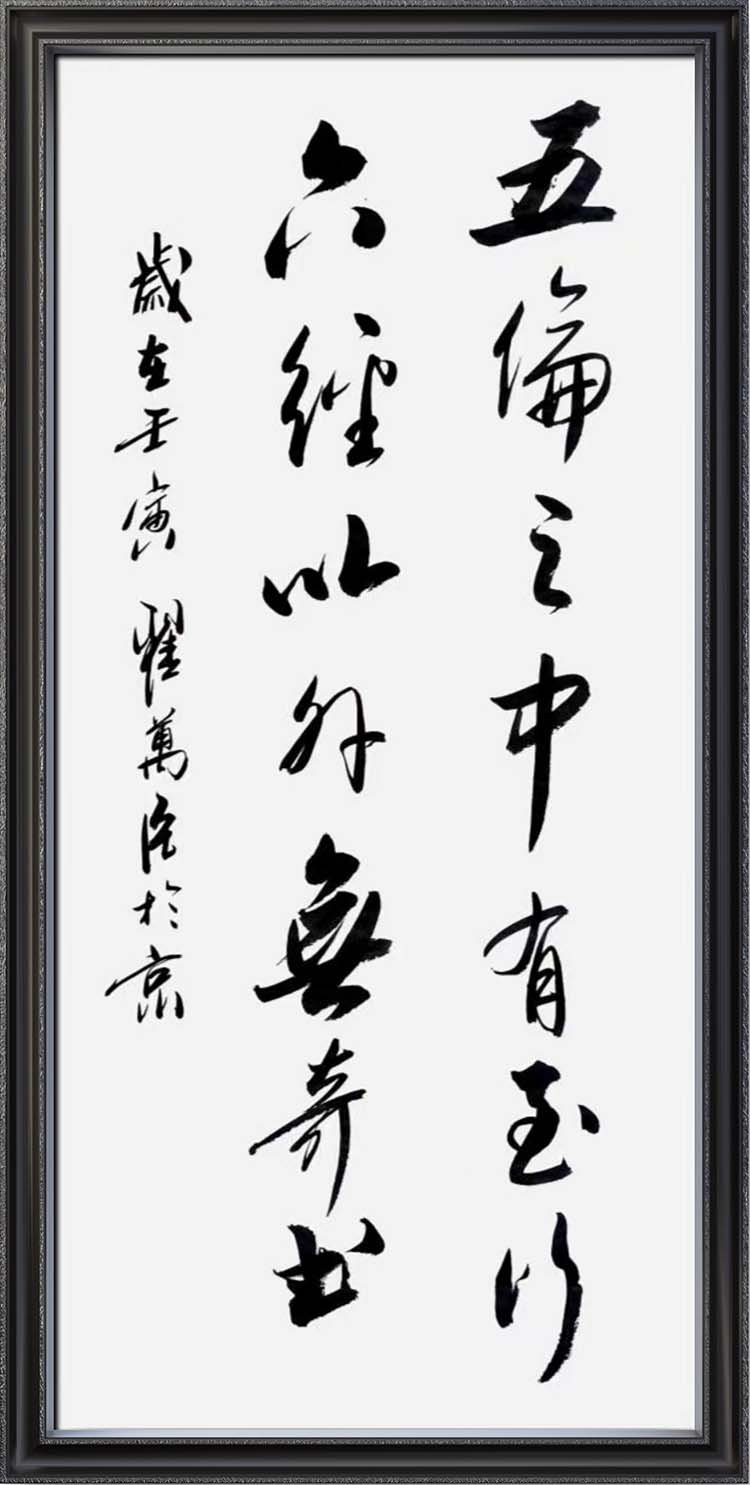 五倫之中有至行
六經以外無奇书
歲在壬寅翟萬民於京